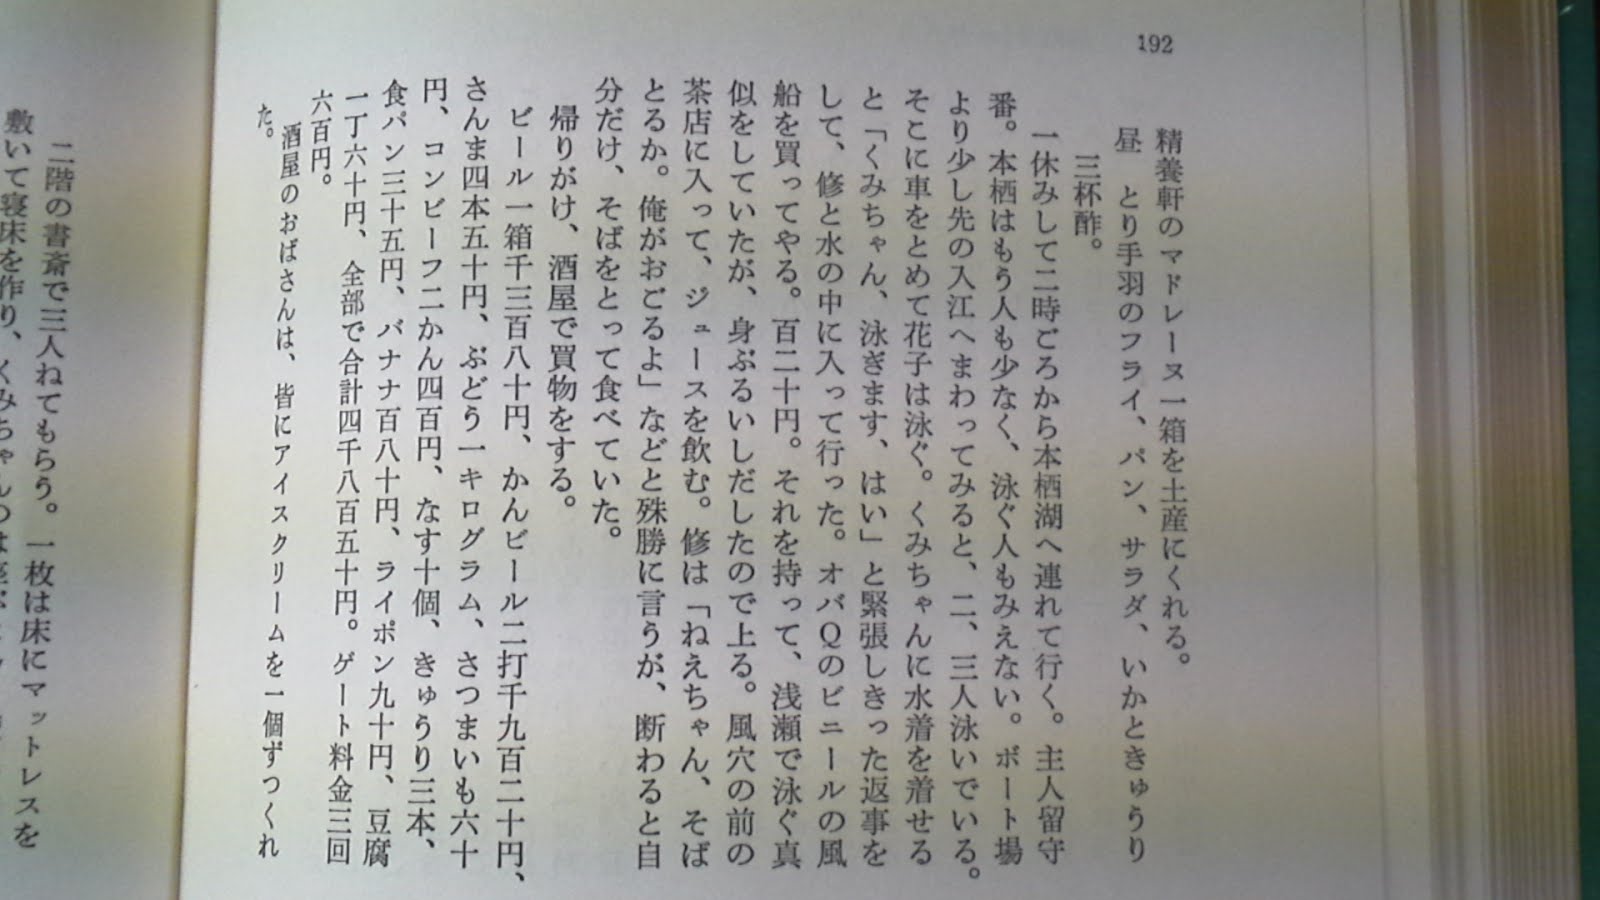 192
精養軒のマドレーヌ一箱を土産にくれる。
昼　とり手羽のフライ、パン、サラダ、いかときゅうり
三杯酢。
一休みして二時ごろから本栖湖へ連れて行く。主人留守
番。本栖はもう人も少なく、泳ぐ人もみえない。ボート場
より少し先の入江へまわってみると、二、三人泳いでいる。
そこに車をとめて花子は泳ぐ。くみちゃんに水着を着せる
と「くみちゃん、泳ぎます、はい」と緊張しきった返事を
して、修と水の中に入って行った。オバQのビニールの風
船を買ってやる。百二十円。それを持って、浅瀬で泳ぐ真
似をしていたが、身ぶるいしだしたので上る。風穴の前の
茶店に入って、ジュースを飲む。修は「ねえちゃん、そば
とるか。俺がおごるよ」などと殊勝に言うが、断わると自
分だけ、そばをとって食べていた。
帰りがけ、酒屋で買物をする。
ビール一箱千三百八十円、かんビール二打千九百二十円、
さんま四本五十円、ぶどう一キログラム、さつまいも六十
円、コンビーフ二かん四百円、なす十個、きゅうり三本、
食パン三十五円、バナナ百八十円、ライポン九十円、豆腐
一丁六十円、全部で合計四千八百五十円。ゲート料金三回
六百円。
酒屋のおばさんは、皆にアイスクリームを一個ずつくれ
た。
二階の書斎で三人ねてもらう。一枚は床にマットレスを
敷いて寝床を作り、くみちゃんのは